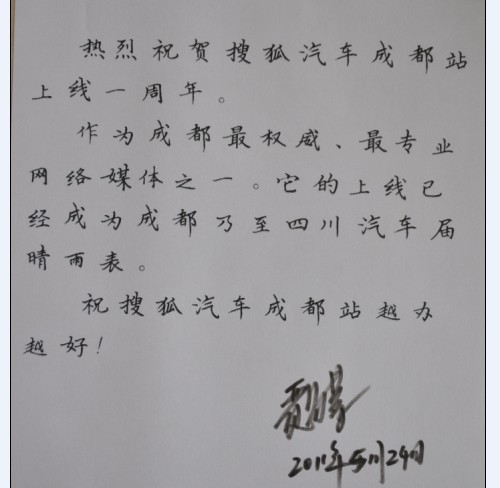 热烈祝贺搜狐汽车成都站
上线一周年。
作为成都最权威、最专业
网络媒体之一。它的上线已
经成为成都乃至四川汽车届
晴雨表。
祝搜狐汽车成都站越办
越好！
2011年5月29日